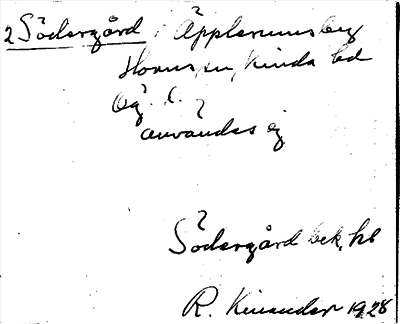 2 Södergård i Äpplerums by
Horns sn, Kinda hd
Ög. l.
användes ej
Södergård bek. hb
R. Kinander 1928